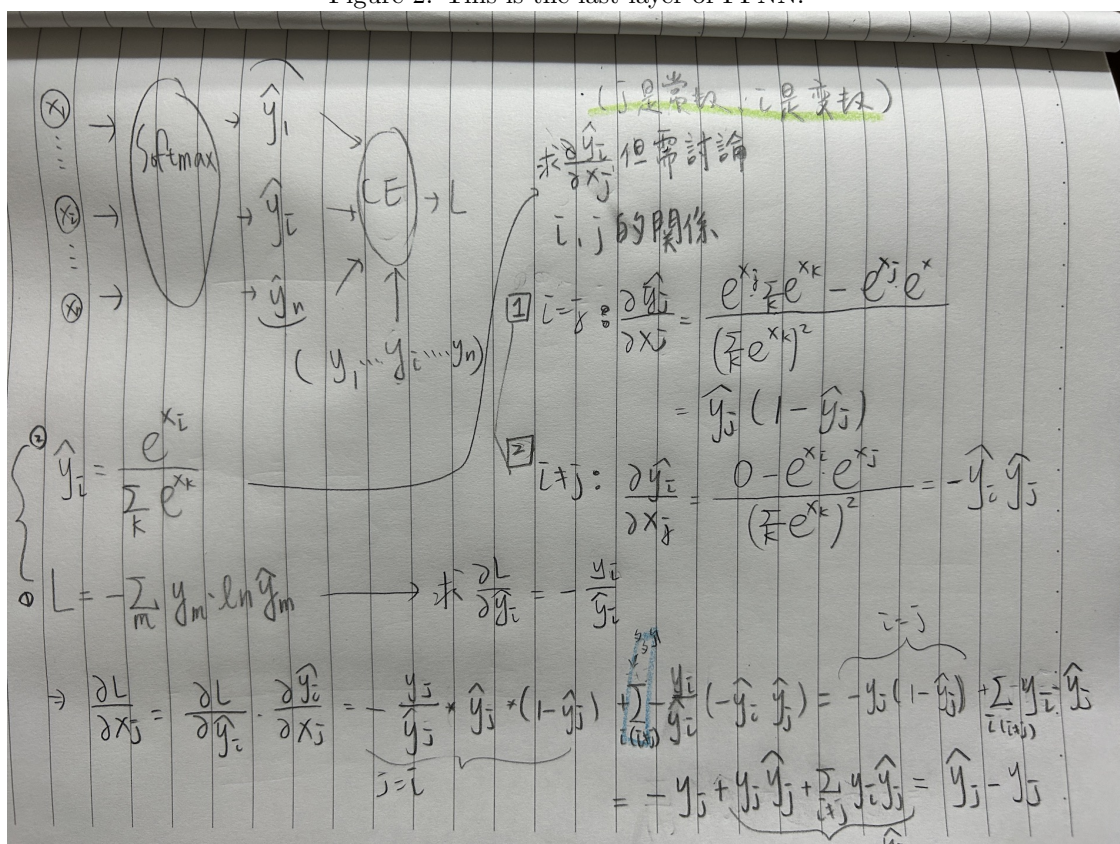 Figure 2: This is the last layer of FFNN.
x₁ → Softmax → ŷ₁
xᵢ → → ŷᵢ → CE → L
xₙ → → ŷₙ
(y₁ … yᵢ … yₙ)
(j是常数, i是变数)
求 ∂ŷᵢ/∂xⱼ 但需討論
i, j 的關係
1 i=j : ∂ŷⱼ/∂xⱼ = (e^{xⱼ} Σₖ e^{xₖ} − e^{xⱼ} e^{x}) / (Σₖ e^{xₖ})²
= ŷⱼ (1 − ŷⱼ)
2 i≠j : ∂ŷᵢ/∂xⱼ = (0 − e^{xᵢ} e^{xⱼ}) / (Σₖ e^{xₖ})² = −ŷᵢ ŷⱼ
② ŷᵢ = e^{xᵢ} / Σₖ e^{xₖ}
① L = −Σₘ yₘ · ln ŷₘ → 求 ∂L/∂ŷᵢ = − yᵢ/ŷᵢ
i=j
→ ∂L/∂xⱼ = ∂L/∂ŷᵢ · ∂ŷᵢ/∂xⱼ = − yⱼ/ŷⱼ * ŷⱼ * (1−ŷⱼ) + Σ_{i(i≠j)} − yᵢ/ŷᵢ (−ŷᵢ ŷⱼ) = −yⱼ(1−ŷⱼ) + Σ_{i(i≠j)} yᵢ · ŷⱼ
j=i
= −yⱼ + yⱼŷⱼ + Σ_{i≠j} yᵢŷⱼ = ŷⱼ − yⱼ